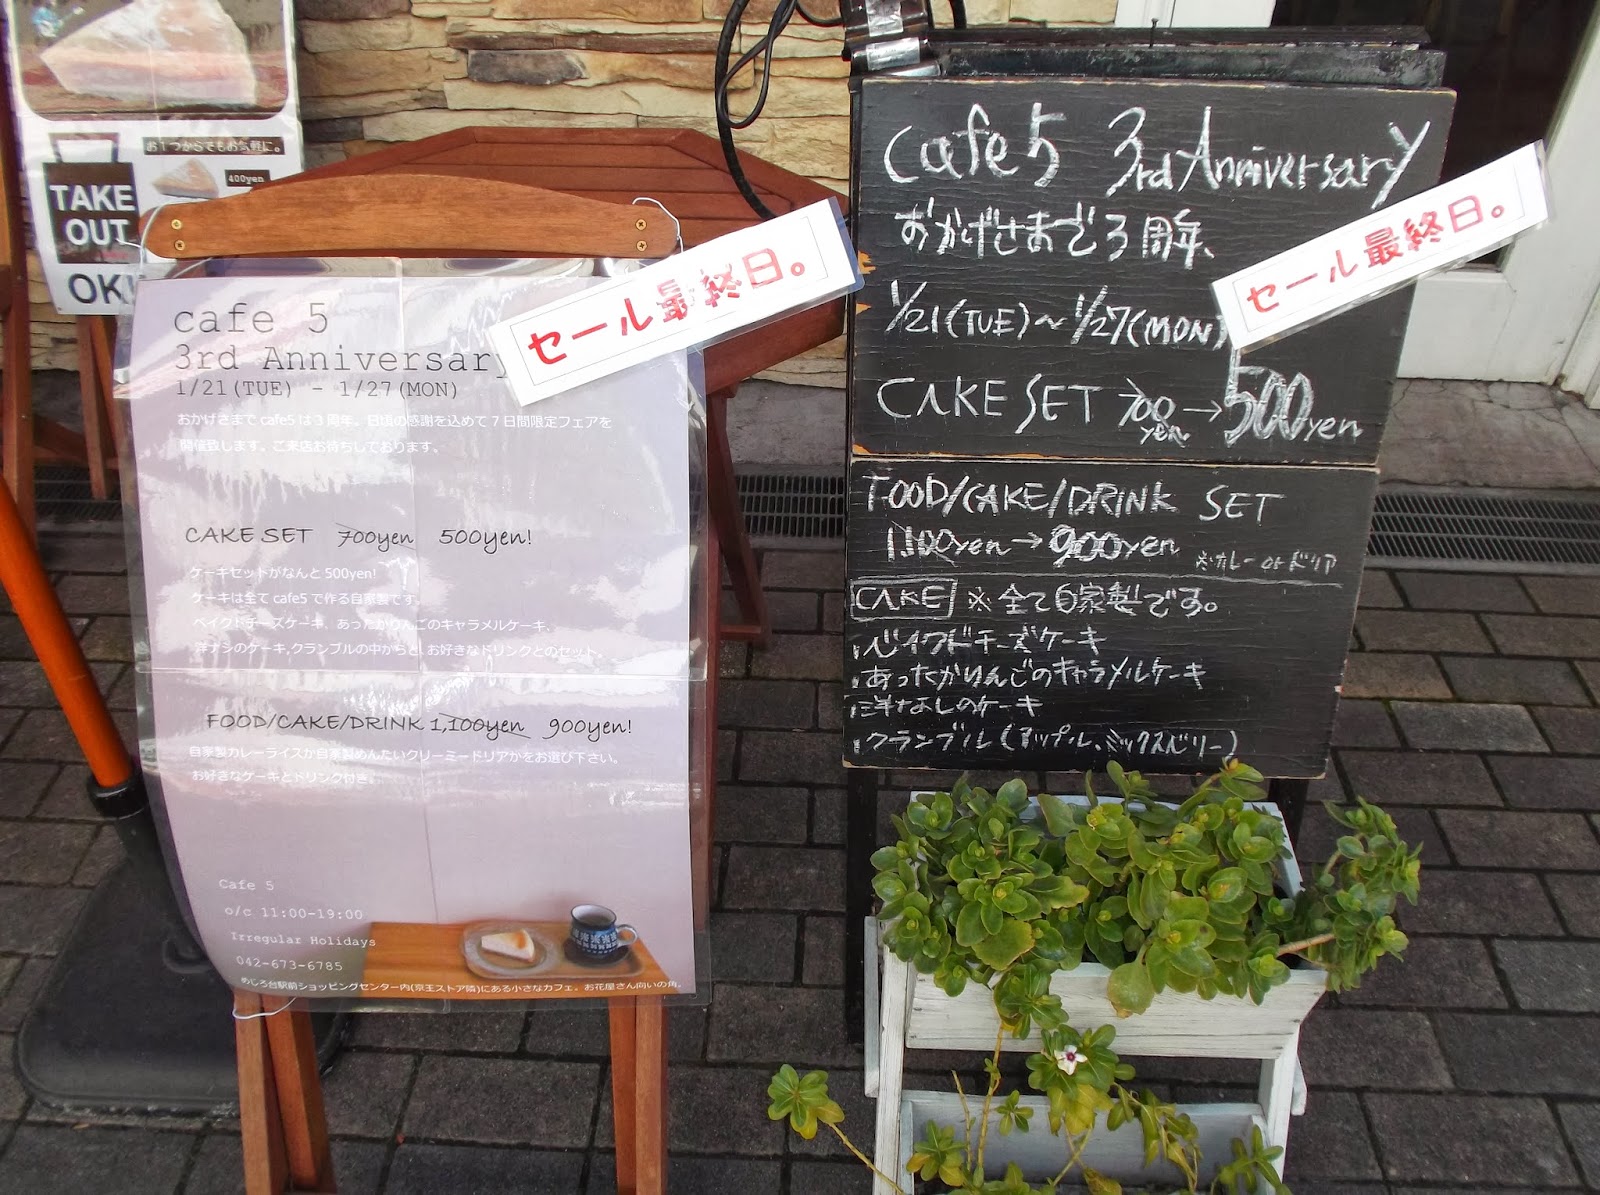 お1つからでもお気軽に。
400yen
TAKE
OUT
OK
セール最終日。
cafe 5
3rd Anniversary
1/21(TUE) - 1/27(MON)
おかげさまでcafe5は3周年。日頃の感謝を込めて7日間限定フェアを
開催致します。ご来店お待ちしております。
CAKE SET 700yen 500yen!
ケーキセットがなんと500yen!
ケーキは全てcafe5で作る自家製です。
ベイクドチーズケーキ、あったかりんごのキャラメルケーキ、
洋ナシのケーキ,クランブルの中からと、お好きなドリンクとのセット。
FOOD/CAKE/DRINK 1,100yen 900yen!
自家製カレーライスか自家製めんたいクリーミードリアかをお選び下さい。
お好きなケーキとドリンク付き。
Cafe 5
o/c 11:00-19:00
Irregular Holidays
042-673-6785
めじろ台駅前ショッピングセンター内(京王ストア隣)にある小さなカフェ。お花屋さん向いの角。
cafe5 3rd Anniversary
おかげさまで3周年、
セール最終日。
1/21(TUE)～1/27(MON)
CAKE SET 700yen→500yen
FOOD/CAKE/DRINK SET
1,100yen→900yen ※カレーorドリア
CAKE ※全て自家製です。
・ベイクドチーズケーキ
・あったかりんごのキャラメルケーキ
・洋なしのケーキ
・クランブル(アップル、ミックスベリー)